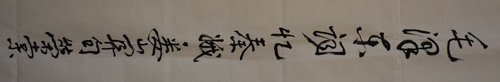 毛泽东词忆秦娥·娄山关句